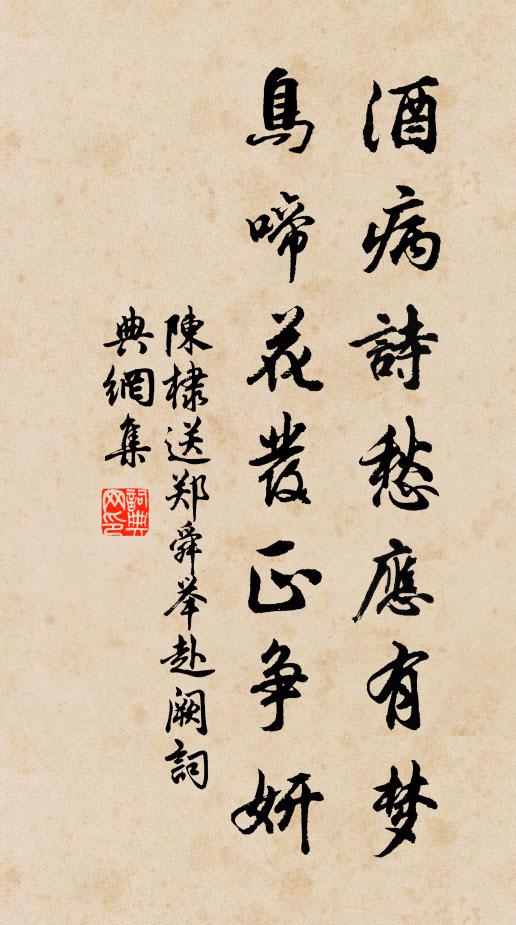 酒病詩愁應有梦
鳥啼花發正争妍
陳棣送郑舜举赴阙詞
典網集
詞典網印